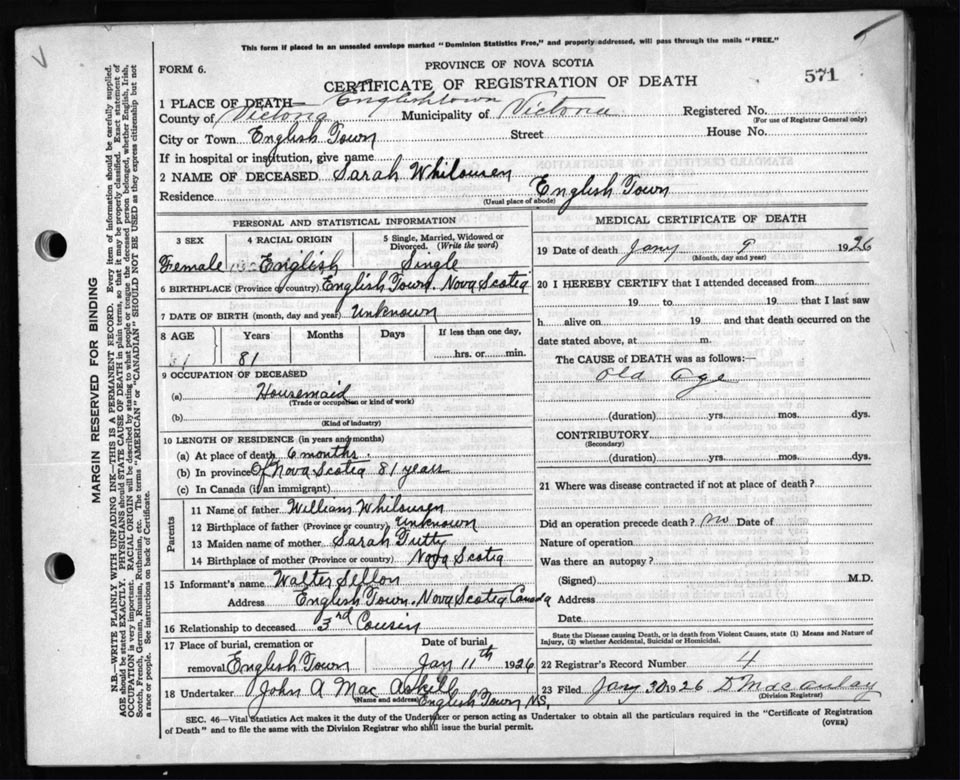 This form if placed in an unsealed envelope marked "Dominion Statistics Free," and properly addressed, will pass through the mails "FREE."
PROVINCE OF NOVA SCOTIA
FORM 6.
CERTIFICATE OF REGISTRATION OF DEATH
571
1 PLACE OF DEATH— Englishtown
County of Victoria Municipality of Victoria Registered No.
(For use of Registrar General only)
City or Town English Town Street House No.
If in hospital or institution, give name
2 NAME OF DECEASED Sarah Whilousen
Residence English Town
(Usual place of abode)
PERSONAL AND STATISTICAL INFORMATION
3 SEX 4 RACIAL ORIGIN 5 Single, Married, Widowed or Divorced. (Write the word)
Female English Single
6 BIRTHPLACE (Province or country) English Town. Nova Scotia
7 DATE OF BIRTH (month, day and year) Unknown
8 AGE Years Months Days If less than one day,
81 hrs. or min.
9 OCCUPATION OF DECEASED
(a) Housemaid
(Trade or occupation or kind of work)
(b)
(Kind of industry)
10 LENGTH OF RESIDENCE (in years and months)
(a) At place of death 6 months.
(b) In province Of Nova Scotia 81 years
(c) In Canada (if an immigrant)
Parents
11 Name of father William Whilousen
12 Birthplace of father (Province or country) Unknown
13 Maiden name of mother Sarah Tutty
14 Birthplace of mother (Province or country) Nova Scotia
15 Informant's name Walter Sellon
Address English Town. Nova Scotia Canada
16 Relationship to deceased 3rd Cousin
17 Place of burial, cremation or removal English Town Date of burial Jan 11th 1926
18 Undertaker John A Mac Askill
(Name and address) English Town N.S.
MEDICAL CERTIFICATE OF DEATH
19 Date of death Jany 9 1926
(Month, day and year)
20 I HEREBY CERTIFY that I attended deceased from
19 to 19 that I last saw
h alive on 19 and that death occurred on the
date stated above, at m.
The CAUSE of DEATH was as follows:—
Old Age
(duration) yrs. mos. dys.
CONTRIBUTORY
(Secondary)
(duration) yrs. mos. dys.
21 Where was disease contracted if not at place of death?
Did an operation precede death? no Date of
Nature of operation
Was there an autopsy?
(Signed) M.D.
Address
Date
State the Disease causing Death, or in death from Violent Causes, state (1) Means and Nature of Injury, (2) whether Accidental, Suicidal or Homicidal.
22 Registrar's Record Number 4
23 Filed Jany 30 1926 D Macaulay
(Division Registrar)
SEC. 46—Vital Statistics Act makes it the duty of the Undertaker or person acting as Undertaker to obtain all the particulars required in the "Certificate of Registration
of Death" and to file the same with the Division Registrar who shall issue the burial permit.
(OVER)
MARGIN RESERVED FOR BINDING
N.B.—WRITE PLAINLY WITH UNFADING INK—THIS IS A PERMANENT RECORD. Every item of information should be carefully supplied.
AGE should be stated EXACTLY. PHYSICIANS should STATE CAUSE OF DEATH in plain terms, so that it may be properly classified. Exact statement of
OCCUPATION is very important. RACIAL ORIGIN will be described by stating to what people or tongue the deceased person belonged, whether English, Irish,
Scotch, French, German, Russian, Ruthenian, etc. The terms "AMERICAN" or "CANADIAN" SHOULD NOT BE USED as they express citizenship but not
a race or people. See instructions on back of Certificate.